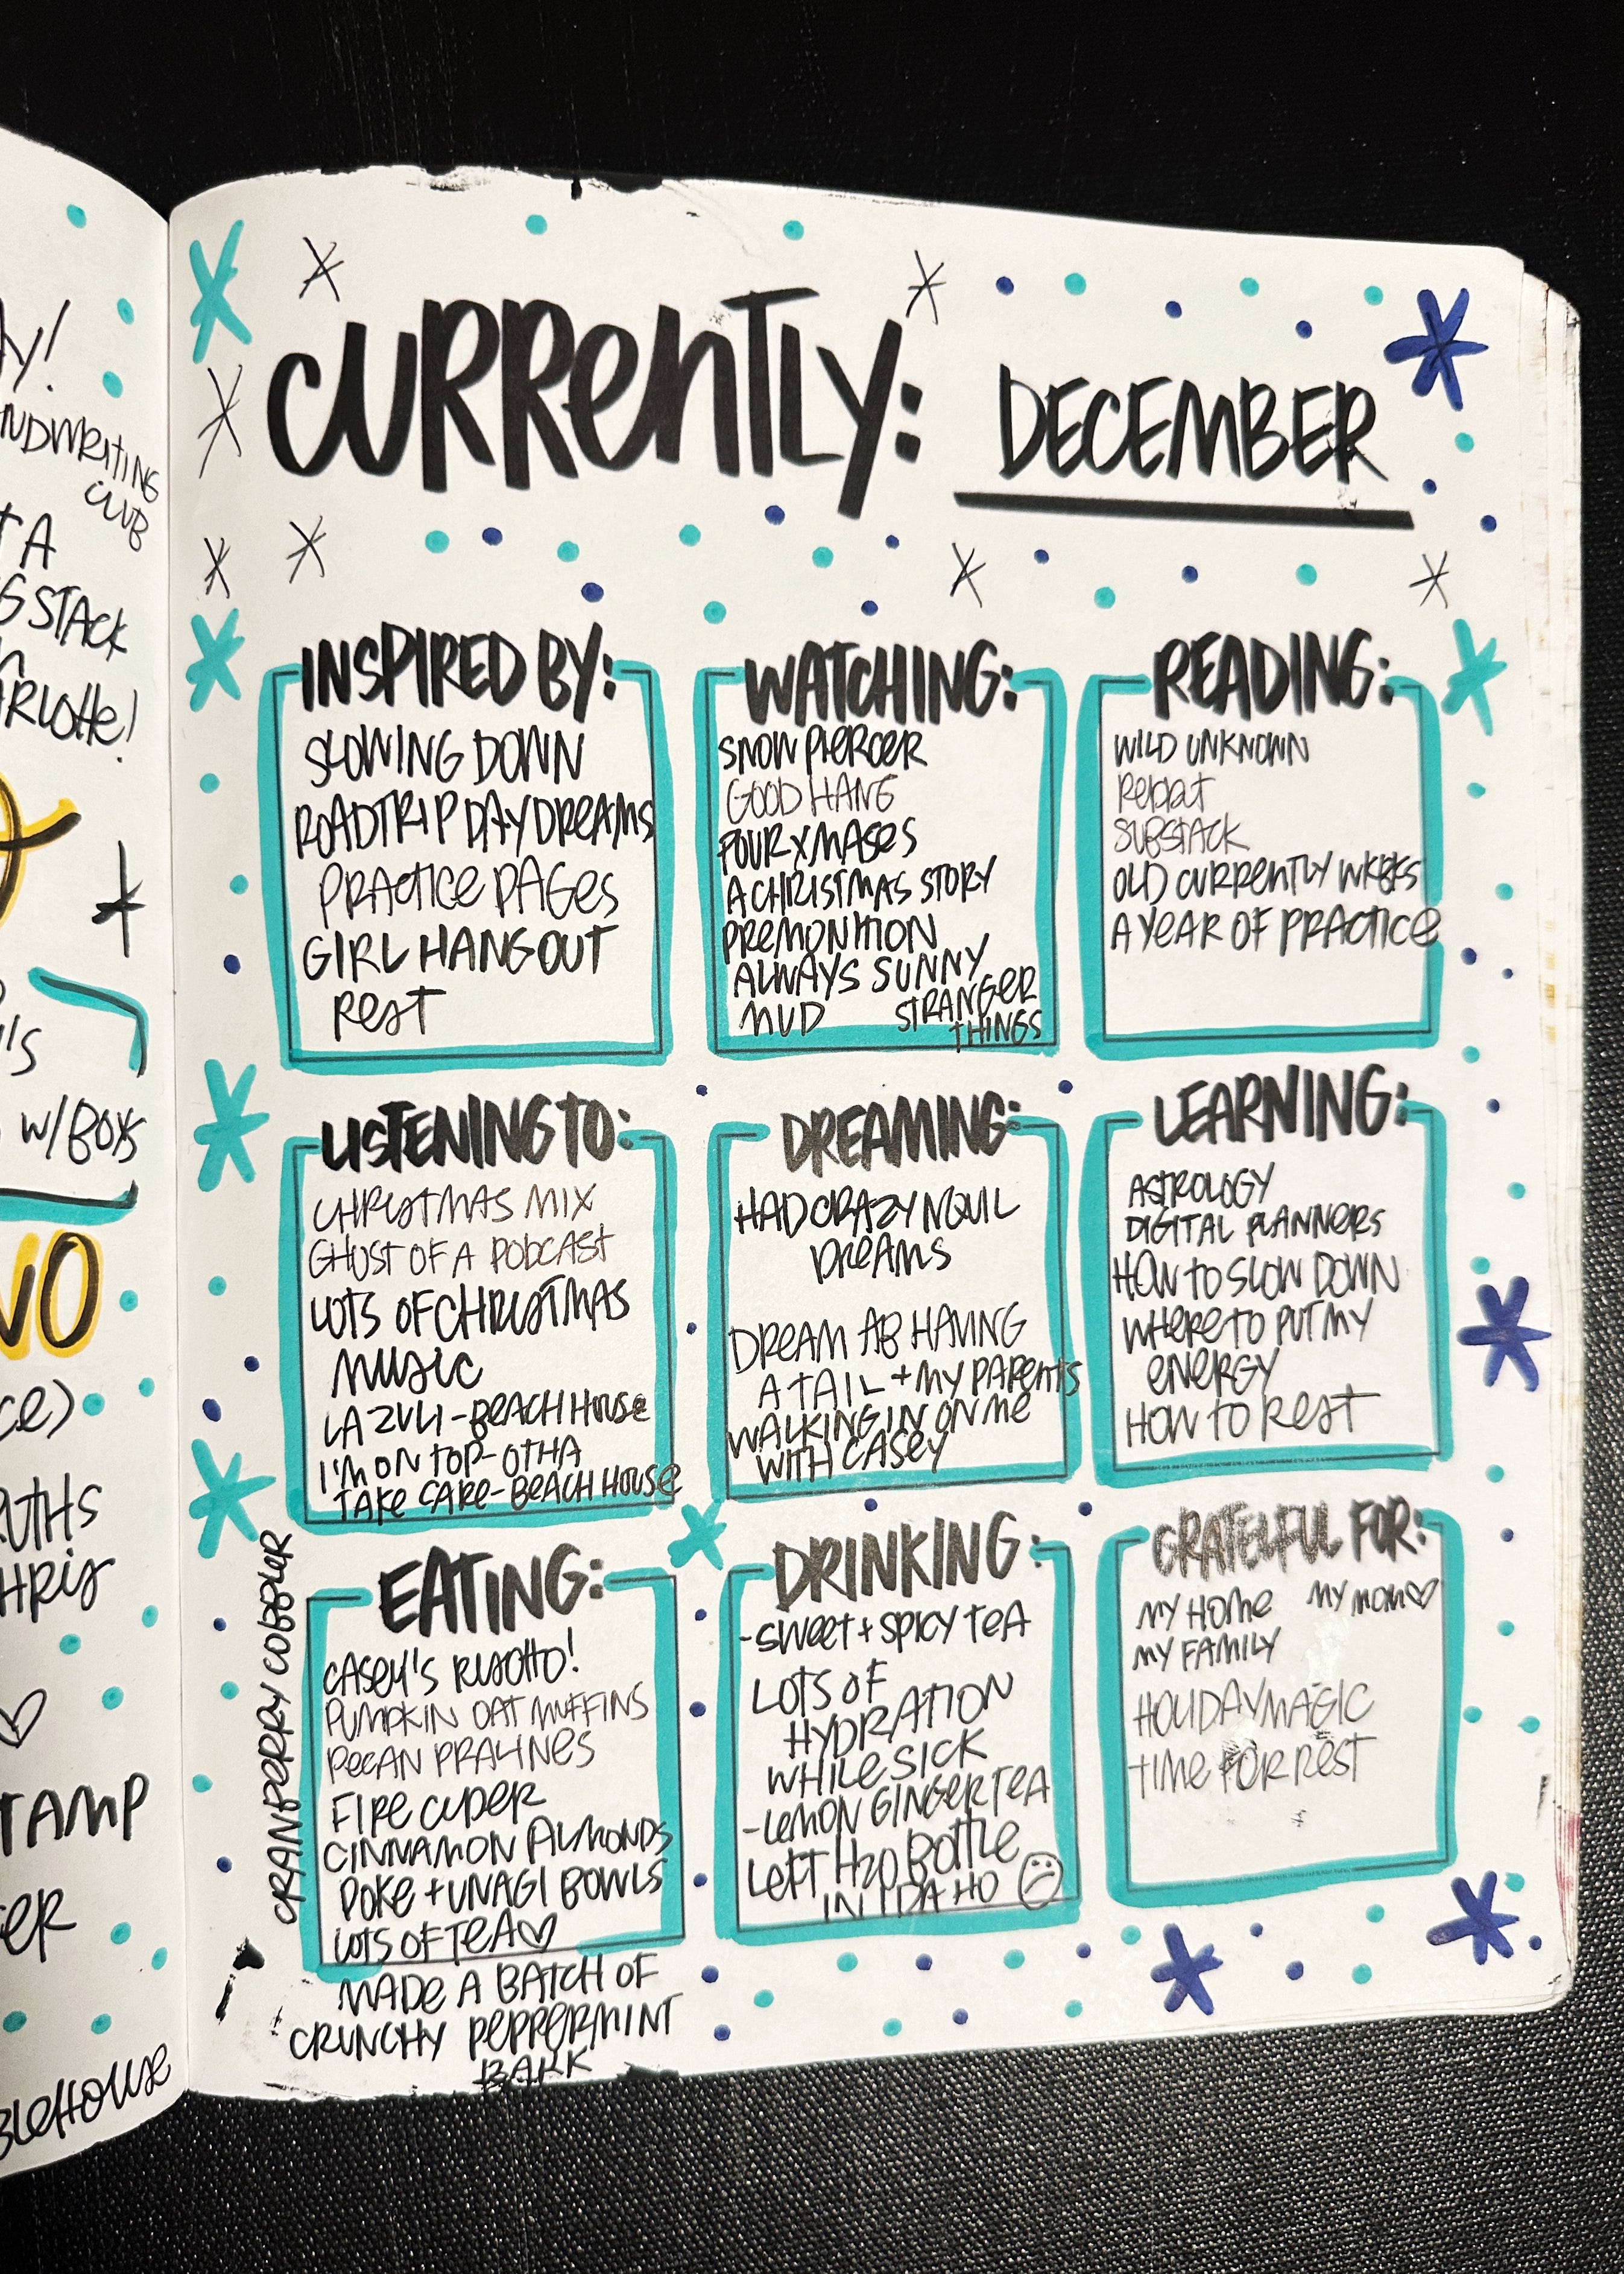 y!
CLUB
T A
G STACK
RLOTTE!
W/BOYS
STAMP
BLEHOUSE
CURRENTLY: DECEMBER
INSPIRED BY:
SLOWING DOWN
ROADTRIP DAYDREAMS
PRACTICE PAGES
GIRL HANGOUT
REST
WATCHING:
SNOWPIERCER
GOOD HANG
FOUR XMASES
A CHRISTMAS STORY
PREMONITION
ALWAYS SUNNY
MUD STRANGER
THINGS
READING:
WILD UNKNOWN
SUBSTACK
OLD CURRENTLY WKBKS
A YEAR OF PRACTICE
LISTENING TO:
CHRISTMAS MIX
GHOST OF A PODCAST
LOTS OF CHRISTMAS
MUSIC
LAZULI - BEACH HOUSE
I'M ON TOP - OTHA
TAKE CARE - BEACH HOUSE
DREAMING:
HAD CRAZY NQUIL
DREAMS
DREAM AB HAVING
A TAIL + MY PARENTS
WALKING IN ON ME
WITH CASEY
LEARNING:
ASTROLOGY
DIGITAL PLANNERS
HOW TO SLOW DOWN
WHERE TO PUT MY
ENERGY
HOW TO REST
EATING:
CASEY'S RISOTTO!
PUMPKIN OAT MUFFINS
PECAN PRALINES
FIRE CIDER
CINNAMON ALMONDS
POKE + UNAGI BOWLS
LOTS OF TEA♡
MADE A BATCH OF
CRUNCHY PEPPERMINT
BARK
CRANBERRY COBBLER
DRINKING:
-SWEET + SPICY TEA
LOTS OF
HYDRATION
WHILE SICK
-LEMON GINGER TEA
LEFT H2O BOTTLE
IN IDAHO ☹
GRATEFUL FOR:
MY HOME MY MOM♡
MY FAMILY
HOLIDAY MAGIC
TIME FOR REST